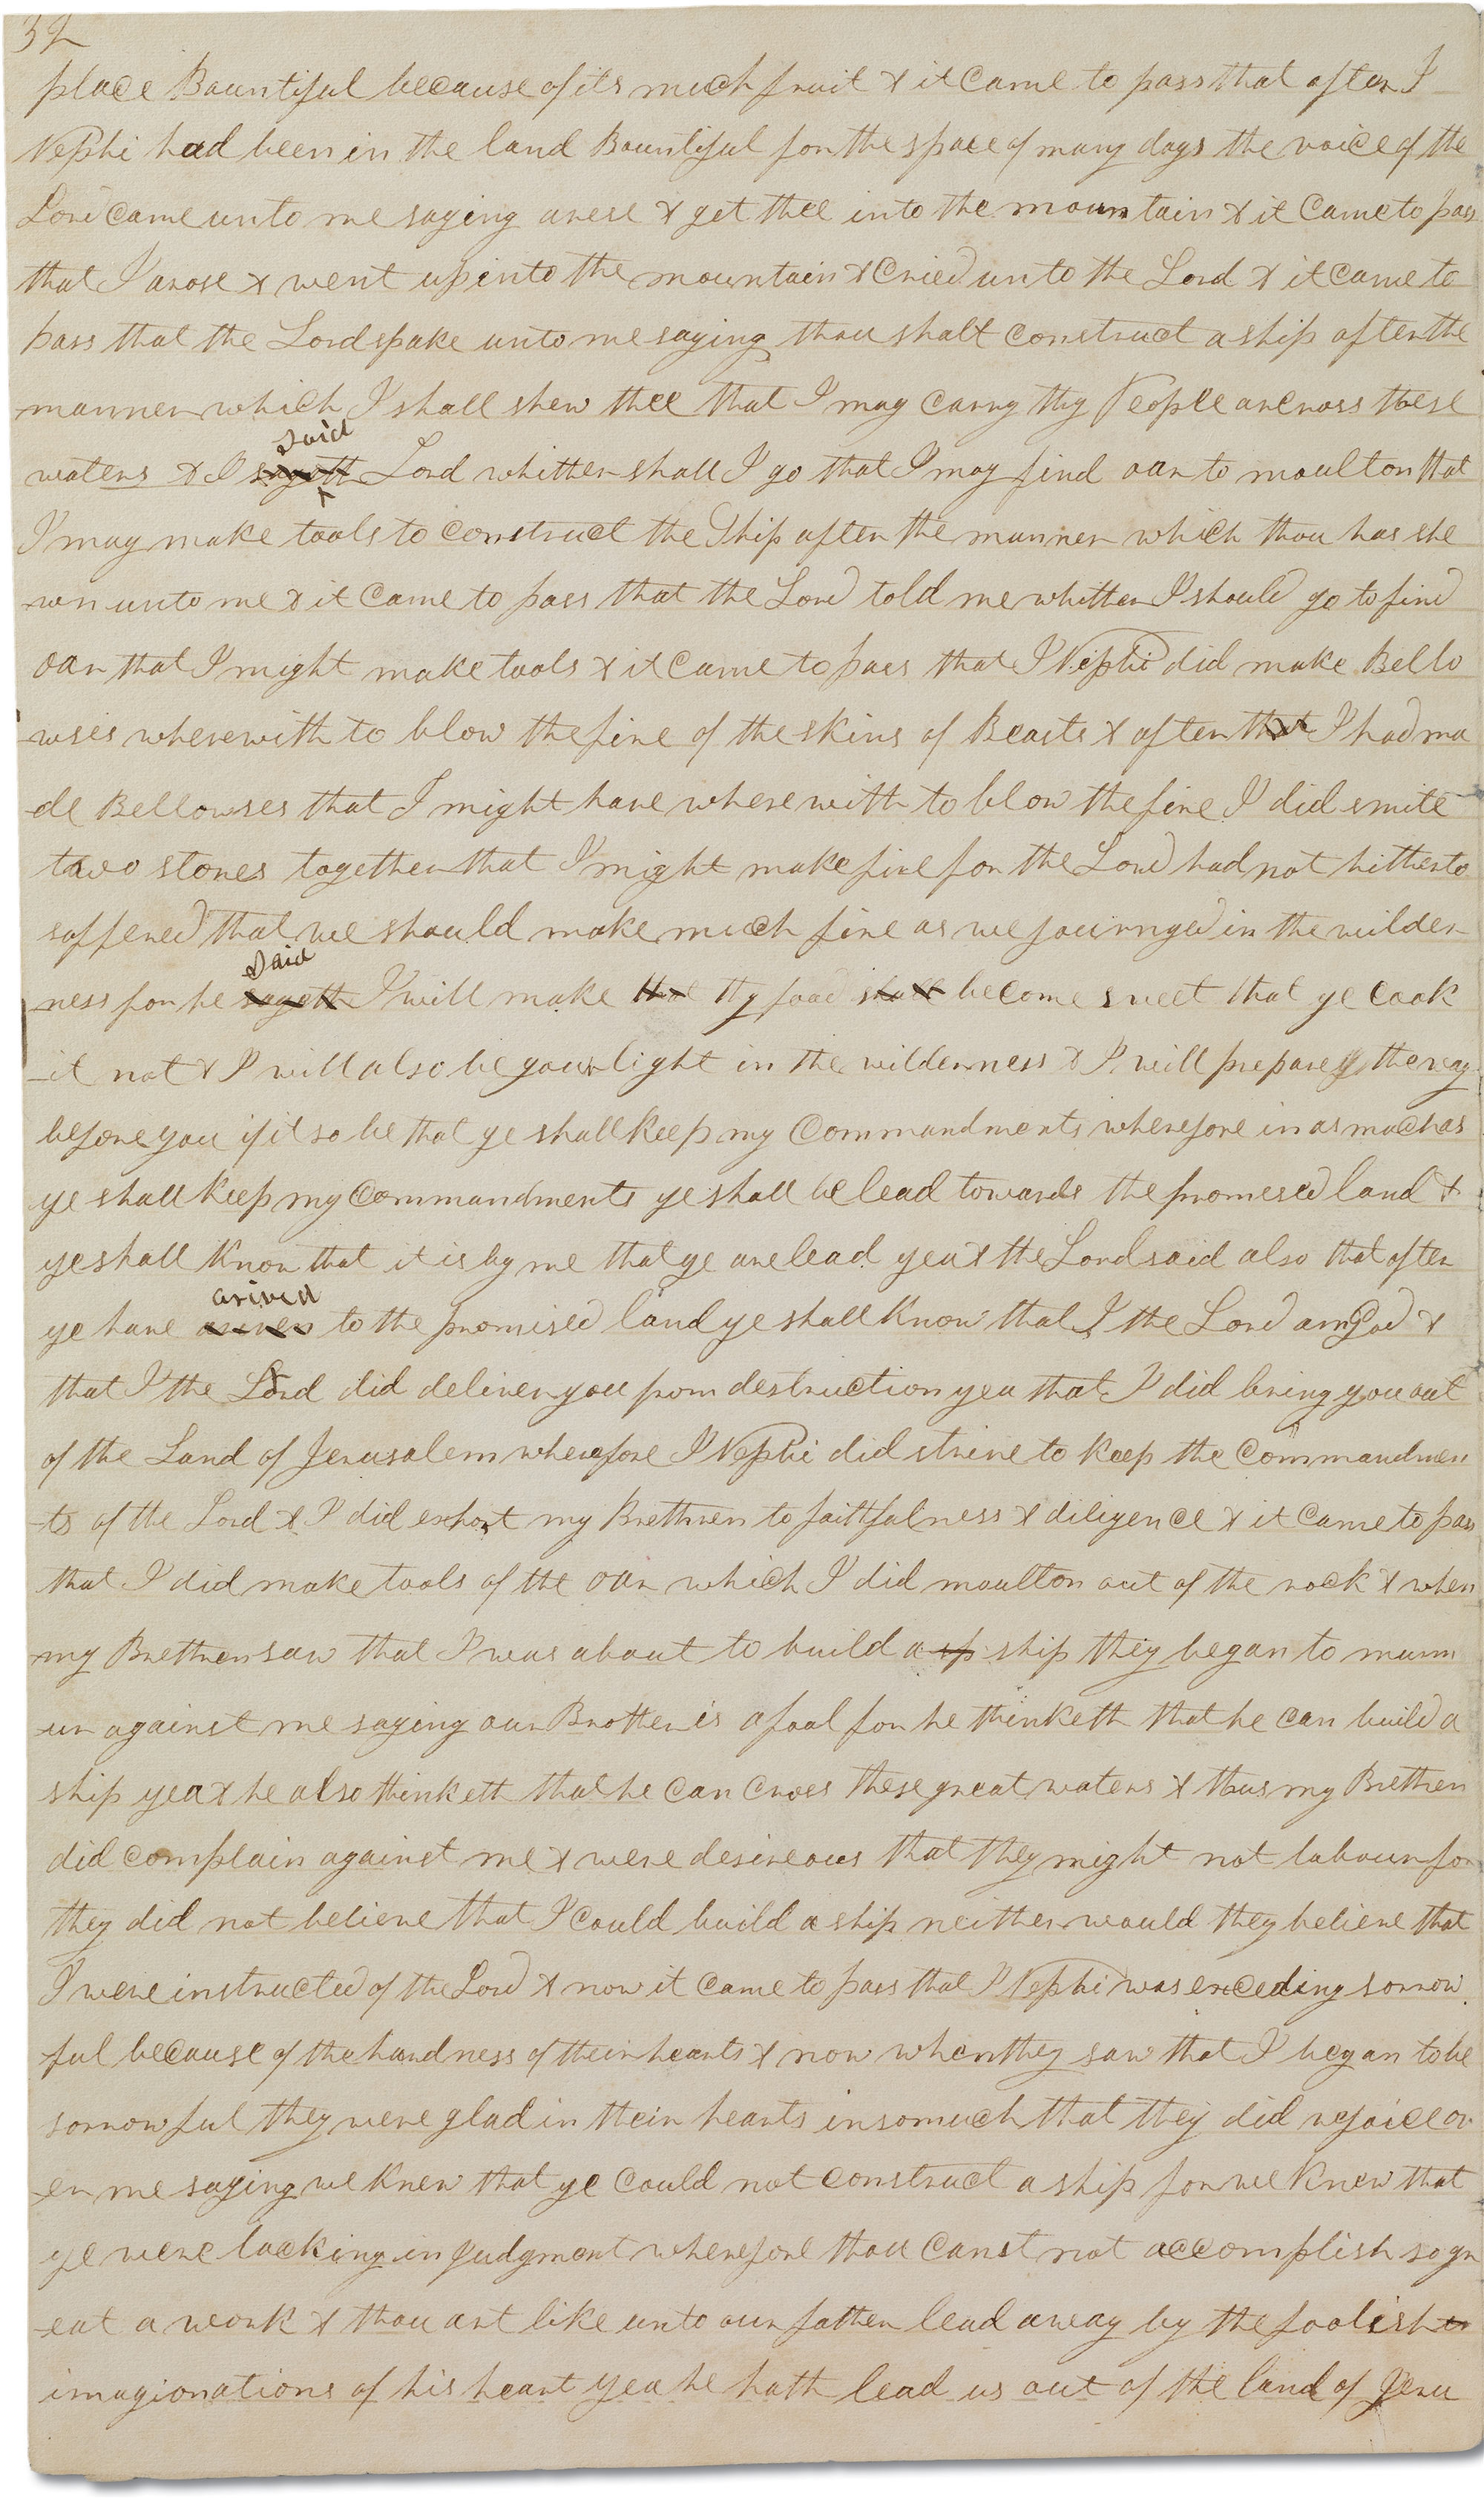 32
place Bountiful because of its much fruit & it came to pass that after I
Nephi had been in the land Bountiful for the space of many days the voice of the
Lord came unto me saying arese & get thee into the mountain & it came to pass
that I arose & went up into the mountain & cried unto the Lord & it came to
pass that the Lord spake unto me saying thou shalt construct a ship after the
manner which I shall shew thee that I may carry thy People across these
said
waters & I sayeth Lord whither shall I go that I may find oar to moulton that
I may make tools to construct the Ship after the manner which thou has she
wn unto me & it came to pass that the Lord told me whither I should go to find
oar that I might make tools & it came to pass that I Nephi did make Bello
wses wherewith to blow the fire of the skins of Beasts & after that I had ma
-de Bellowses that I might have wherewith to blow the fire I did smite
two stones together that I might make fire for the Lord had not hitherto
suffered that we should make much fire as we journyed in the wilder
said
-ness for he sayeth I will make that thy food shall become sweet that ye cook
-it not & I will also be your light in the wilderness & I will prepare the way
before you if it so be that ye shall keep my commandments wherefore in as much as
ye shall keep my commandments ye shall be lead towards the promised land &
ye shall know that it is by me that ye are lead yea & the Lord said also that after
arived
ye have to the promised land ye shall know that I the Lord am God &
that I the Lord did deliver you from destruction yea that I did bring you out
of the Land of Jerusalem wherefore I Nephi did strive to keep the commandmen
-ts of the Lord & I did exhort my Brethren to faithfulness & diligence & it came to pass
that I did make tools of the oar which I did moulton out of the rock & when
my Brethren saw that I was about to build a sp ship they began to murm
-ur against me saying our Brother is a fool for he thinketh that he can build a
ship yea & he also thinketh that he can cross these great waters & thus my Brethren
did complain against me & were desireous that they might not labour for
they did not believe that I could build a ship neither would they believe that
I were instructed of the Lord & now it came to pass that I Nephi was exceding sorrow
-ful because of the hardness of their hearts & now when they saw that I began to be
sorrowful they were glad in their hearts insomuch that they did rejoice ov
-er me saying we knew that ye could not construct a ship for we knew that
ye were lacking in judgment wherefore thou canst not accomplish so gr
-eat a work & thou art like unto our father lead away by the foolish
imagionations of his heart yea he hath lead us out of the land of Jeru